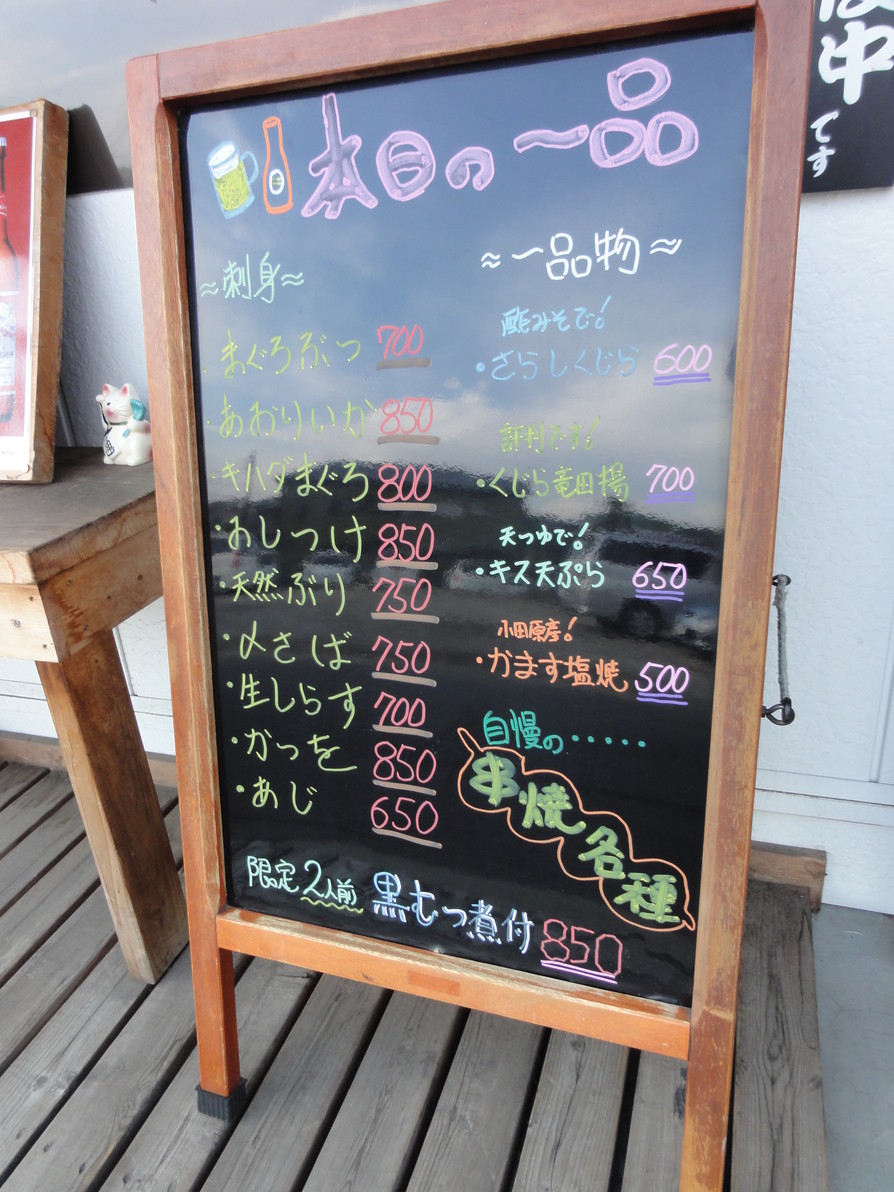 本日の一品
~刺身~
・まぐろぶつ 700
・あおりいか 850
・キハダまぐろ 800
・おしつけ 850
・天然ぶり 750
・〆さば 750
・生しらす 700
・かつを 850
・あじ 650
≈一品物≈
酢みそで!
・さらしくじら 600
評判です!
・くじら竜田揚 700
天つゆで!
・キス天ぷら 650
小田原産!
・かます塩焼 500
自慢の・・・・・
串焼各種
限定2人前 黒むつ煮付 850
中
です